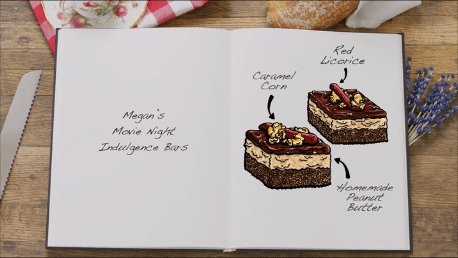 Megan's
Movie Night
Indulgence Bars
Red
Licorice
Caramel
Corn
Homemade
Peanut
Butter